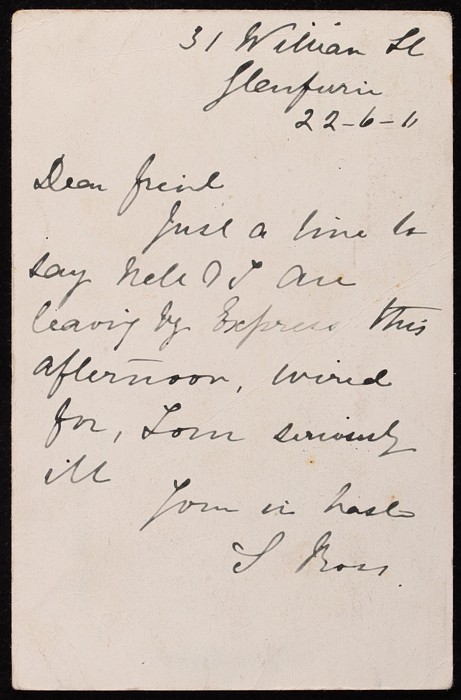 31 William St
Glenferrie
22-6-11
Dear friend
Just a line to
say Nell & I are
leaving by Express this
afternoon, wired
for, Tom seriously
ill
Yours in haste
S Ross.